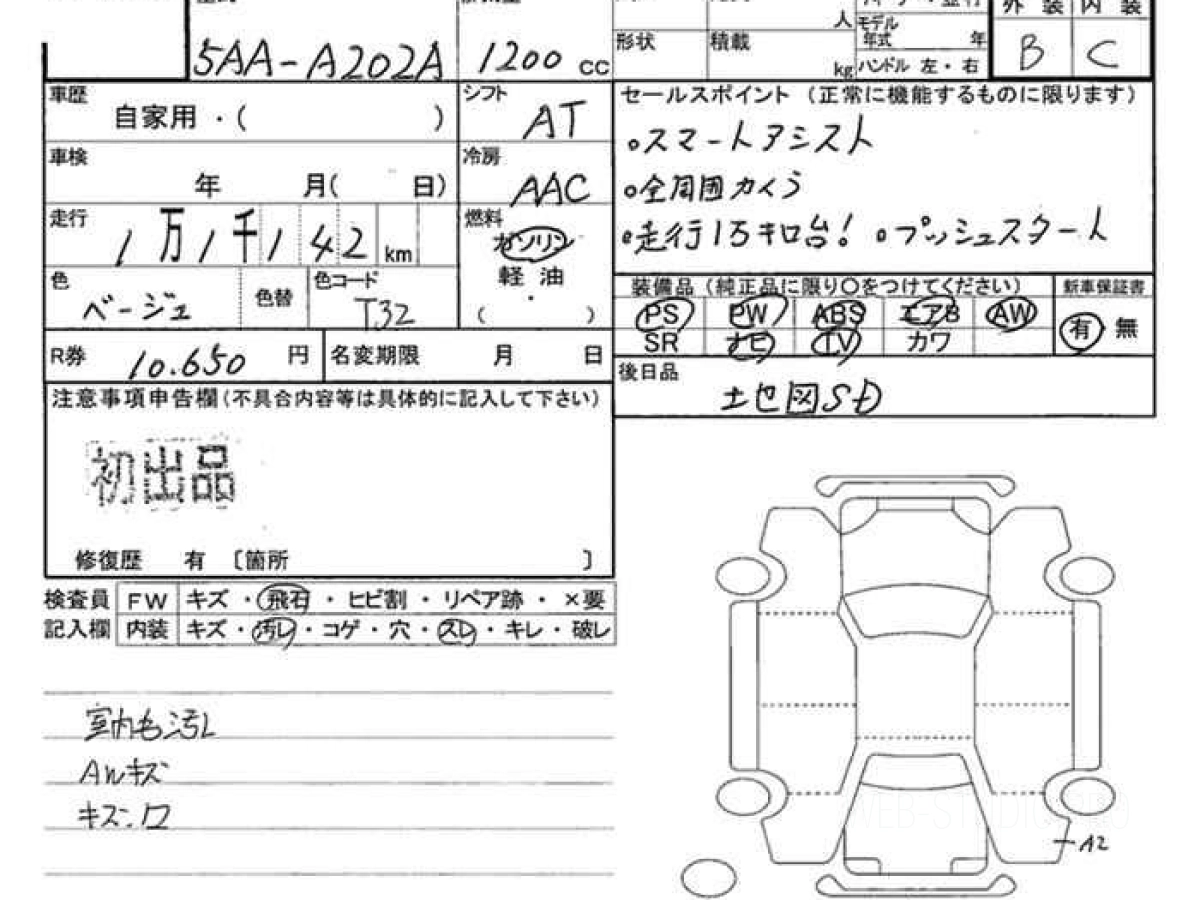 外 装 内 装
人 モデル
5AA-A202A 1200 cc 形状 積載 年式 年 B C
kg ハンドル 左・右
車歴 シフト セールスポイント (正常に機能するものに限ります)
自家用・( ) AT
。スマートアシスト
車検 冷房
年 月( 日) AAC 。全周囲カメラ
走行 燃料
1万1千142 km ガソリン 。走行1万キロ台! 。プッシュスタート
軽 油
色 色替 色コード 装備品 (純正品に限り○をつけてください) 新車保証書
ベージュ T32 ・ PS PW ABS エアB AW 有 無
( )
R券 10.650 円 名変期限 月 日 SR ナビ TV カワ
後日品
注意事項申告欄(不具合内容等は具体的に記入して下さい) 地図SD
初出品
修復歴 有 〔箇所 〕
検査員 FW キズ・飛石・ヒビ割・リペア跡・×要
記入欄 内装 キズ・汚レ・コゲ・穴・スレ・キレ・破レ
室内色汚レ
AWキズ
A2